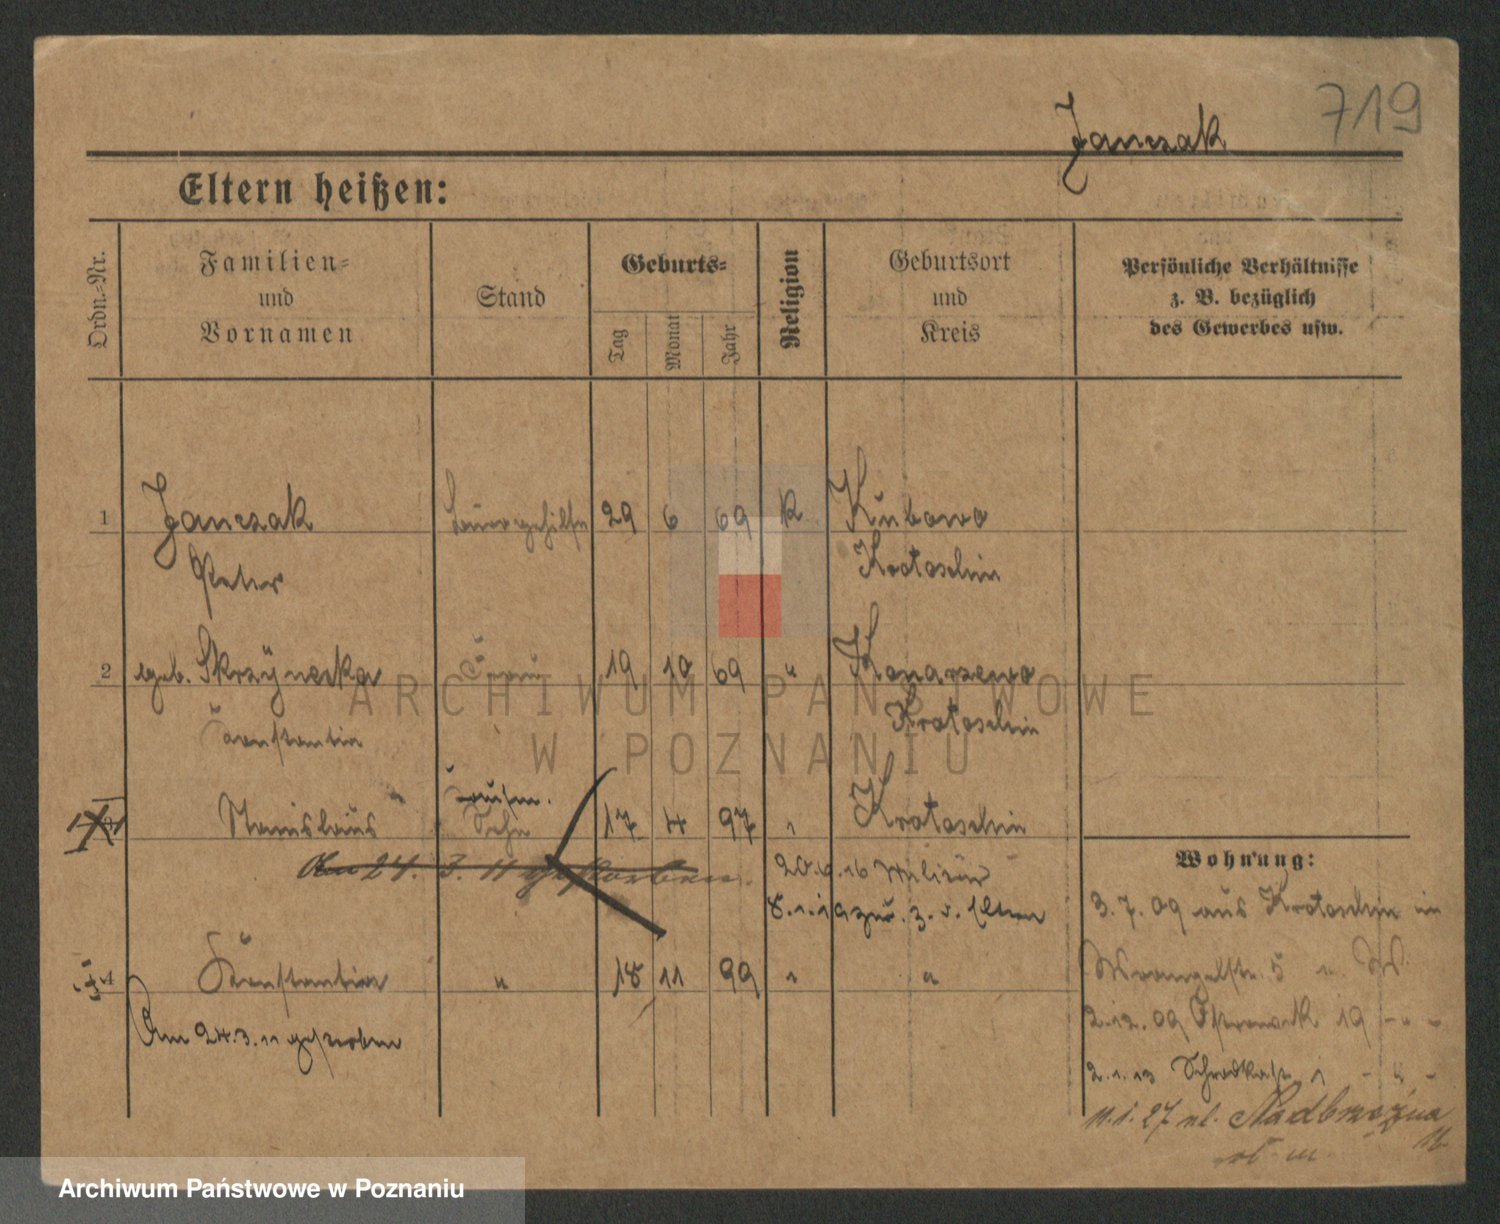 719
Janczak
Eltern heißen:
Ordn.-Nr.
Familien-
und
Vornamen
Stand
Geburts-
Tag
Monat
Jahr
Religion
Geburtsort
und
Kreis
Persönliche Verhältnisse
z. B. bezüglich
des Gewerbes usw.
1 Janczak 29 6 69 K Kubowo
Peter Krotoschin
2 geb. Skrzÿnecka Frau 19 10 69 " Konarzewo
Konstantin Krotoschin
ARCHIWUM PAŃSTWOWE
W POZNANIU
3 Stanislaus Sohn 17 4 97 " Krotoschin
Am 24. 3. 11 gestorben.
20.6.16 Militär
8.1.19 zur. z. d. Eltern
4 Konstantin " 18 11 99 " "
Am 24.3.11 gestorben
Wohnung:
3.7.09 aus Krotoschin in
Wrangelstr. 5 n. W.
2.12.09 Ostrowek 19 - " -
2.1.13 Schrodkastr 1 - " -
11.1.27 ul. Nadbrzeżna
11
Archiwum Państwowe w Poznaniu